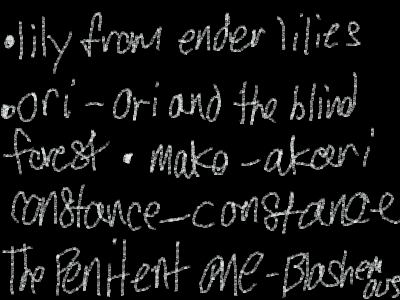 •lily from ender lilies
•ori - ori and the blind
forest • mako - akoori
constance - constance
The Penitent one - Blasphemous